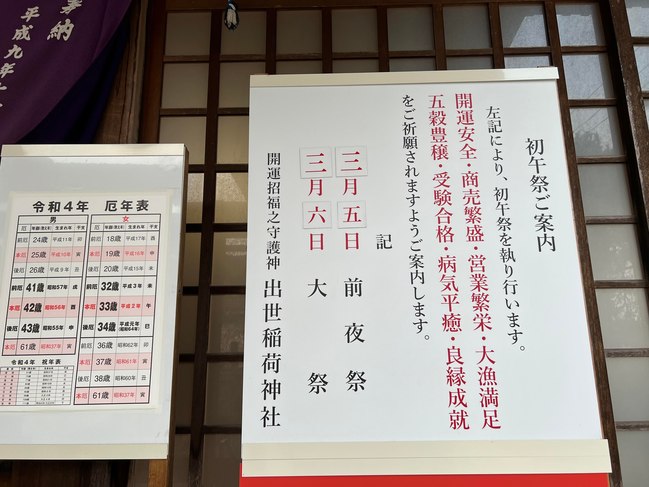 初午祭ご案内
左記により、初午祭を執り行います。
開運安全・商売繁盛・営業繁栄・大漁満足
五穀豊穣・受験合格・病気平癒・良縁成就
をご祈願されますようご案内します。
記
三月五日 前夜祭
三月六日 大祭
開運招福之守護神 出世稲荷神社
奉納
平成九年
令和４年 厄年表
男 女
厄 年齢(数え年) 生まれ年 干支 厄 年齢(数え年) 生まれ年 干支
前厄 24歳 平成11年 卯 前厄 18歳 平成17年 酉
本厄 25歳 平成10年 寅 本厄 19歳 平成16年 申
後厄 26歳 平成9年 丑 後厄 20歳 平成15年 未
前厄 41歳 昭和57年 戌 前厄 32歳 平成3年 未
本厄 42歳 昭和56年 酉 本厄 33歳 平成2年 午
後厄 43歳 昭和55年 申 後厄 34歳 平成元年(昭和64年) 巳
本厄 61歳 昭和37年 寅 前厄 36歳 昭和62年 卯
本厄 37歳 昭和61年 寅
後厄 38歳 昭和60年 丑
本厄 61歳 昭和37年 寅
令和４年 祝年表